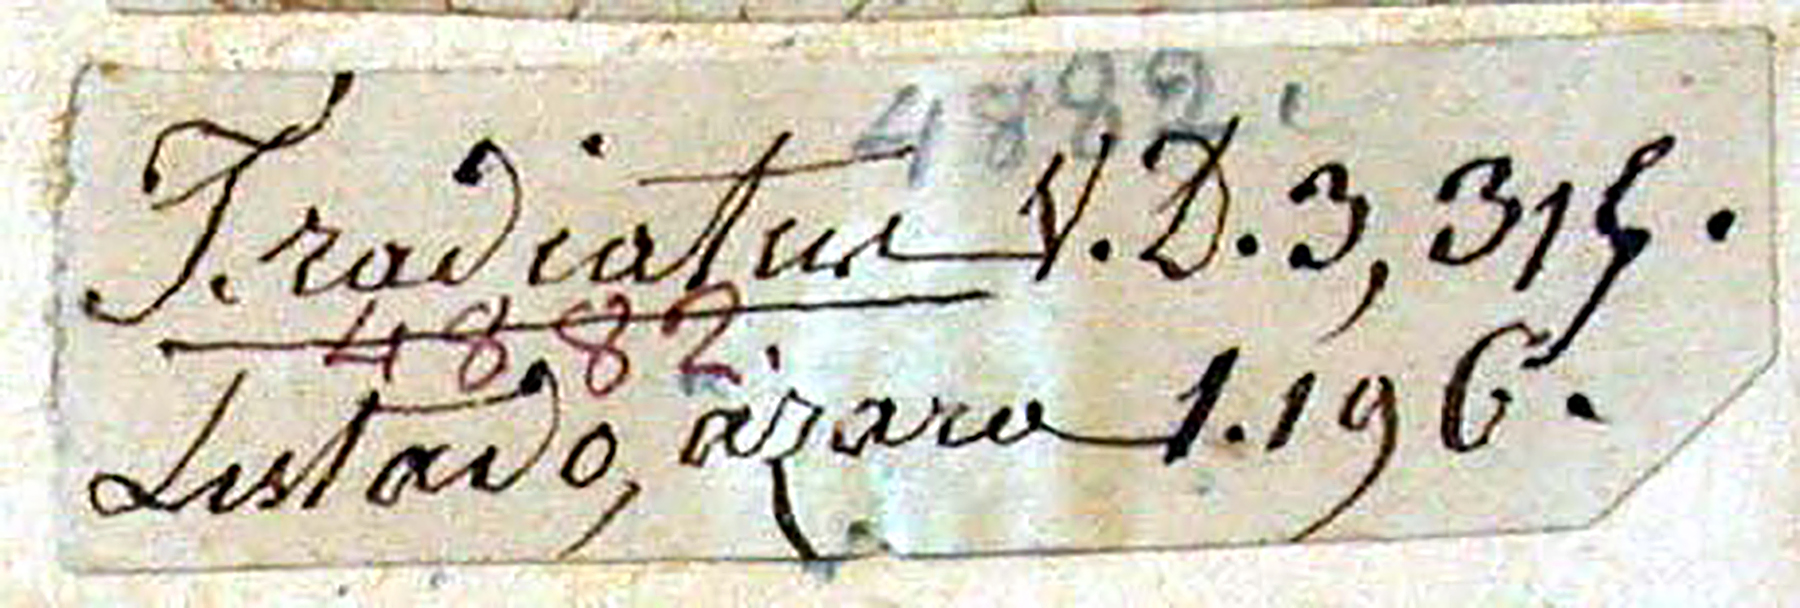 4882.
T. radiatus V. D. 3, 315.
4882.
Listado, azara 1. 196.